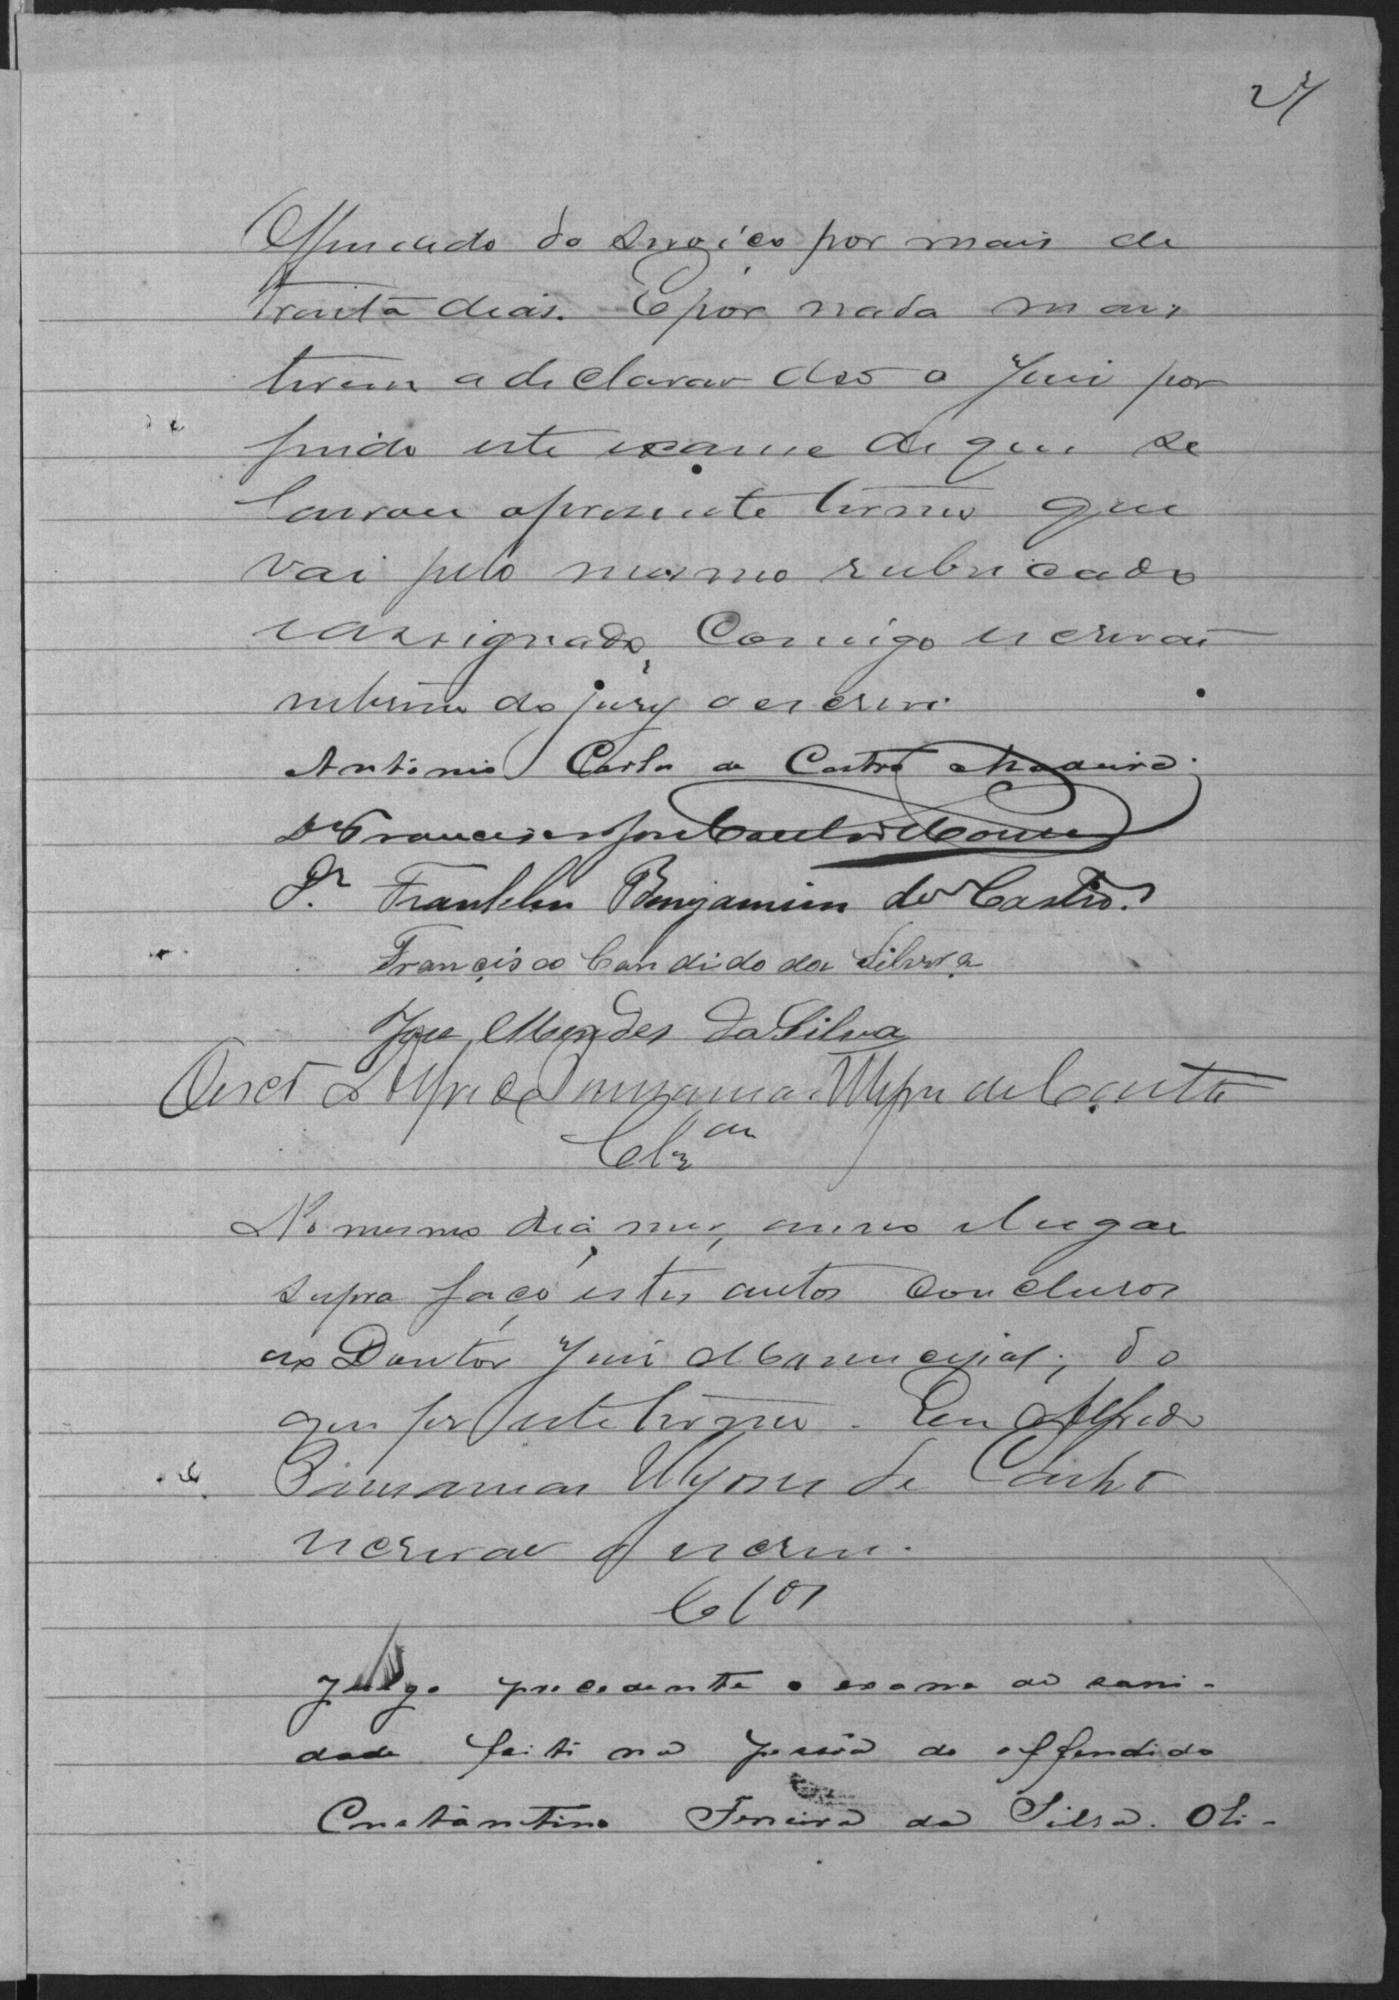 27
Offendido do serviço por mais de
trinta dias. E por nada mais
terem a declarar deo o Juiz por
findo este exame de que se
lavrou o presente termo que
vai pelo mesmo rubricado
e assignado, Comigo escrivão
interino do jury o escrevi.
Antonio Carlos de Castro Madeira.
Dr Francisco José Coelho de Moura
Dr. Franklin Benjamim de Castro.
Francisco Candido da Silveira
José Mendes da Silva
O escr Alfredo Ulysses de Castro
Clzam
No mesmo dia, mez, anno e lugar
supra faço estes autos conclusos
ao Doutor Juiz Municipal; do
que fiz este termo. Eu Alfredo
Ulysses de Castro
escrivão o escrevi.
Clos
Julgo procedente o exame de sani-
dade feito na pessoa do offendido
Constantino Ferreira da Silva. Oli-